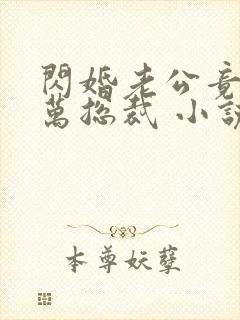 閃婚老公竟
萬總裁 小說
本尊妖孽